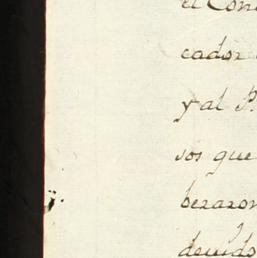 el Con
cador
y al P.
sos que
beraron
devido